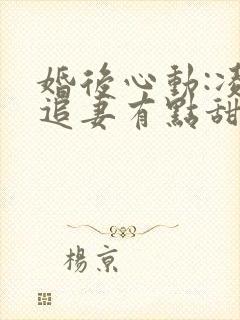 婚後心動:凌
追妻有點甜
楊京